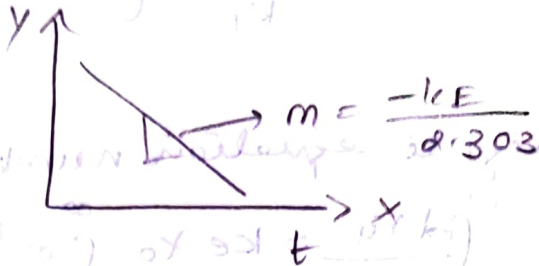 y
m = -kE / 2.303
x
t